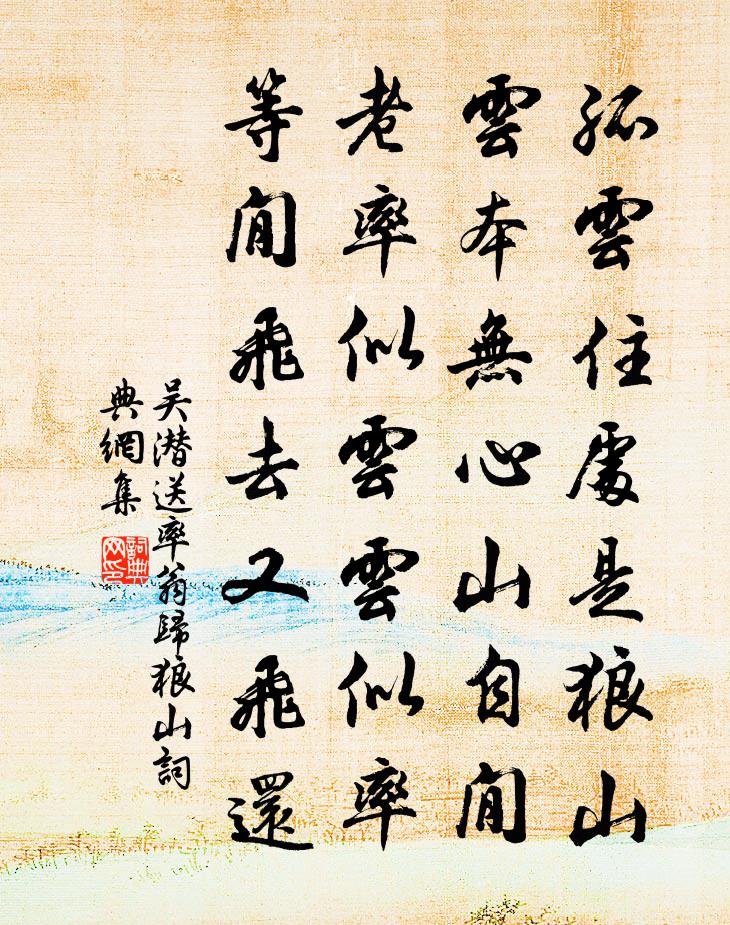 孤雲住處是狼山
雲本無心山自閒
老率似雲雲似率
等閒飛去又飛還
吴潛送率翁歸狼山詞
典網集
詞典
网印